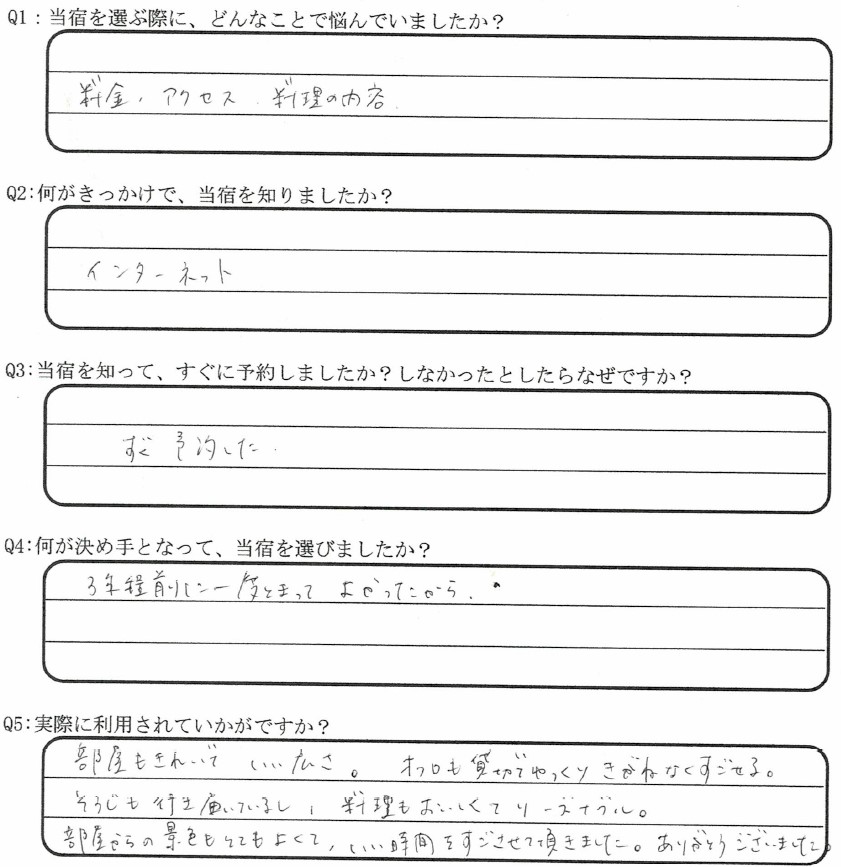 Q1：当宿を選ぶ際に、どんなことで悩んでいましたか？
料金、アクセス、料理の内容.
Q2:何がきっかけで、当宿を知りましたか？
インターネット
Q3:当宿を知って、すぐに予約しましたか？しなかったとしたらなぜですか？
すぐ予約した.
Q4:何が決め手となって、当宿を選びましたか？
3年程前に一度とまって よかったから.
Q5:実際に利用されていかがですか？
部屋もきれいで いい広さ。 オフロも貸切でゆっくりきがねなくすごせる。
そうじも行き届いているし、料理もおいしくてリーズナブル。
部屋からの景色もとてもよくて、いい時間をすごさせて頂きました。ありがとうございました。